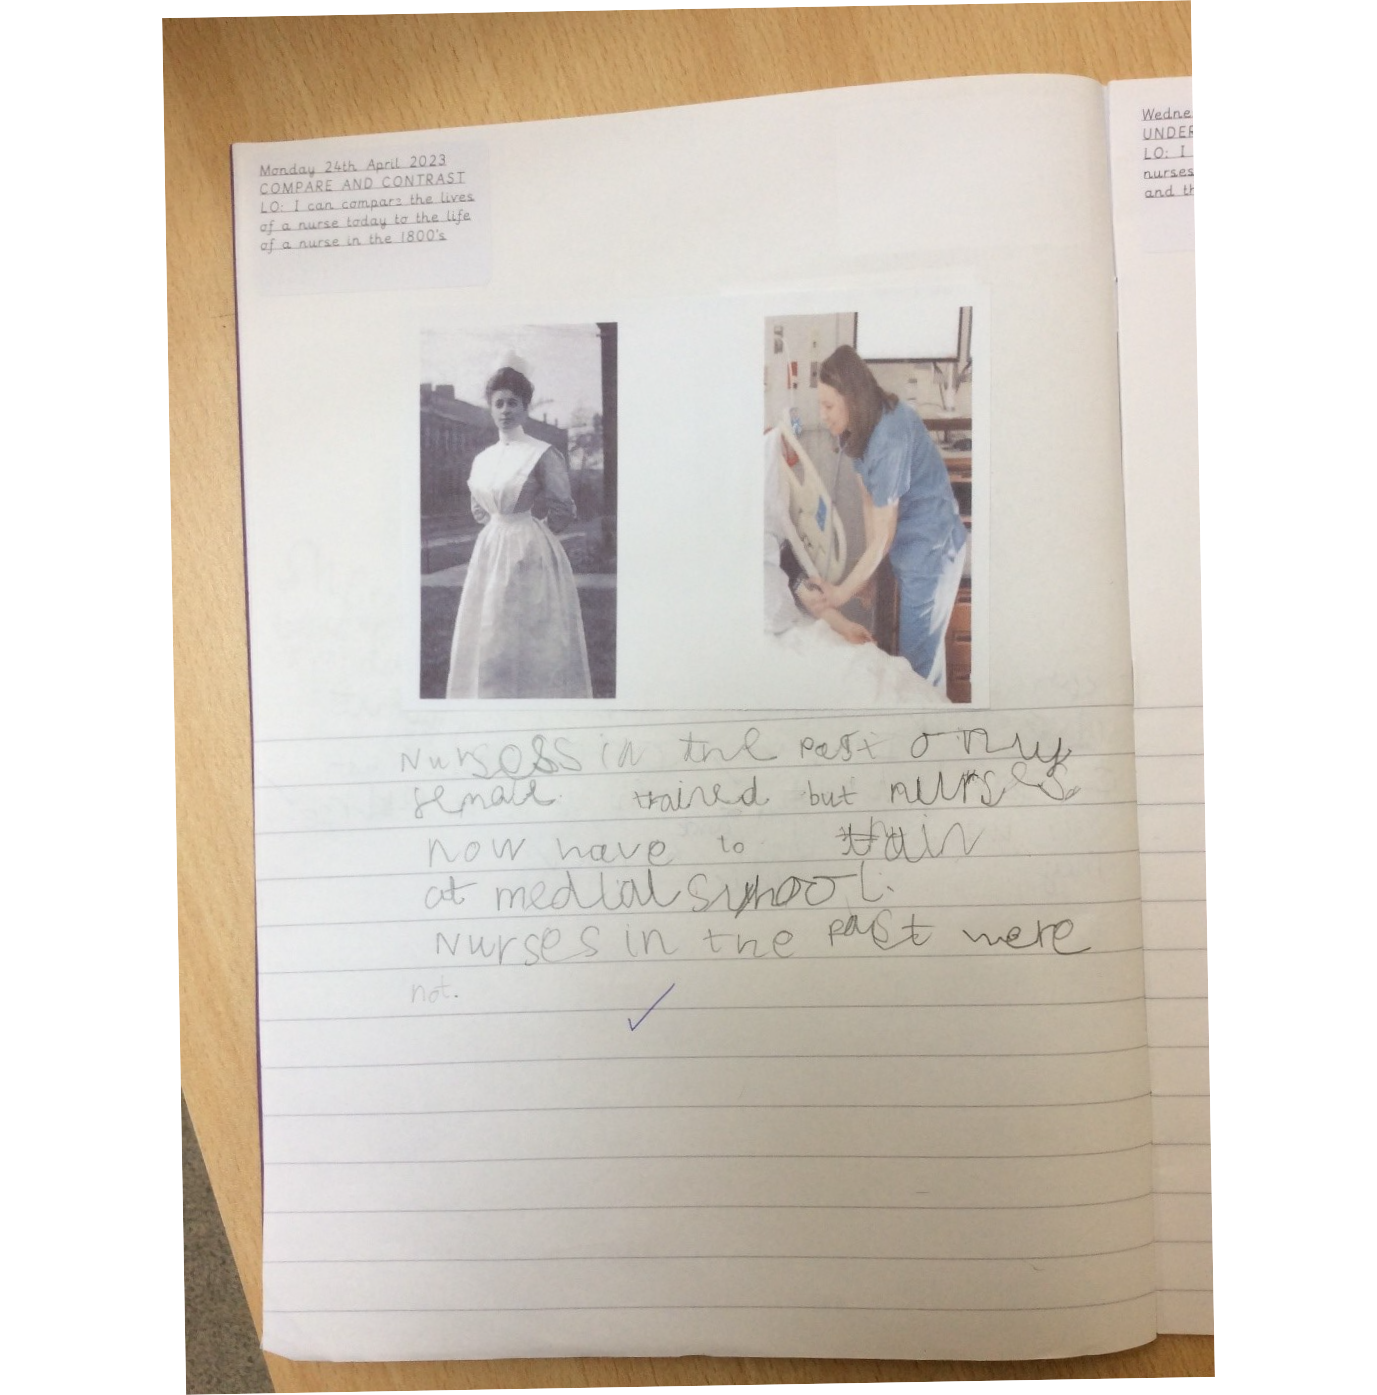 Monday 24th April 2023
COMPARE AND CONTRAST
LO: I can compare the lives
of a nurse today to the life
of a nurse in the 1800's
Wedne
UNDER
LO: I
nurses
and th
Nursess in the past only
female trained but nurses
now have to train
at medical school.
Nurses in the past were
not.